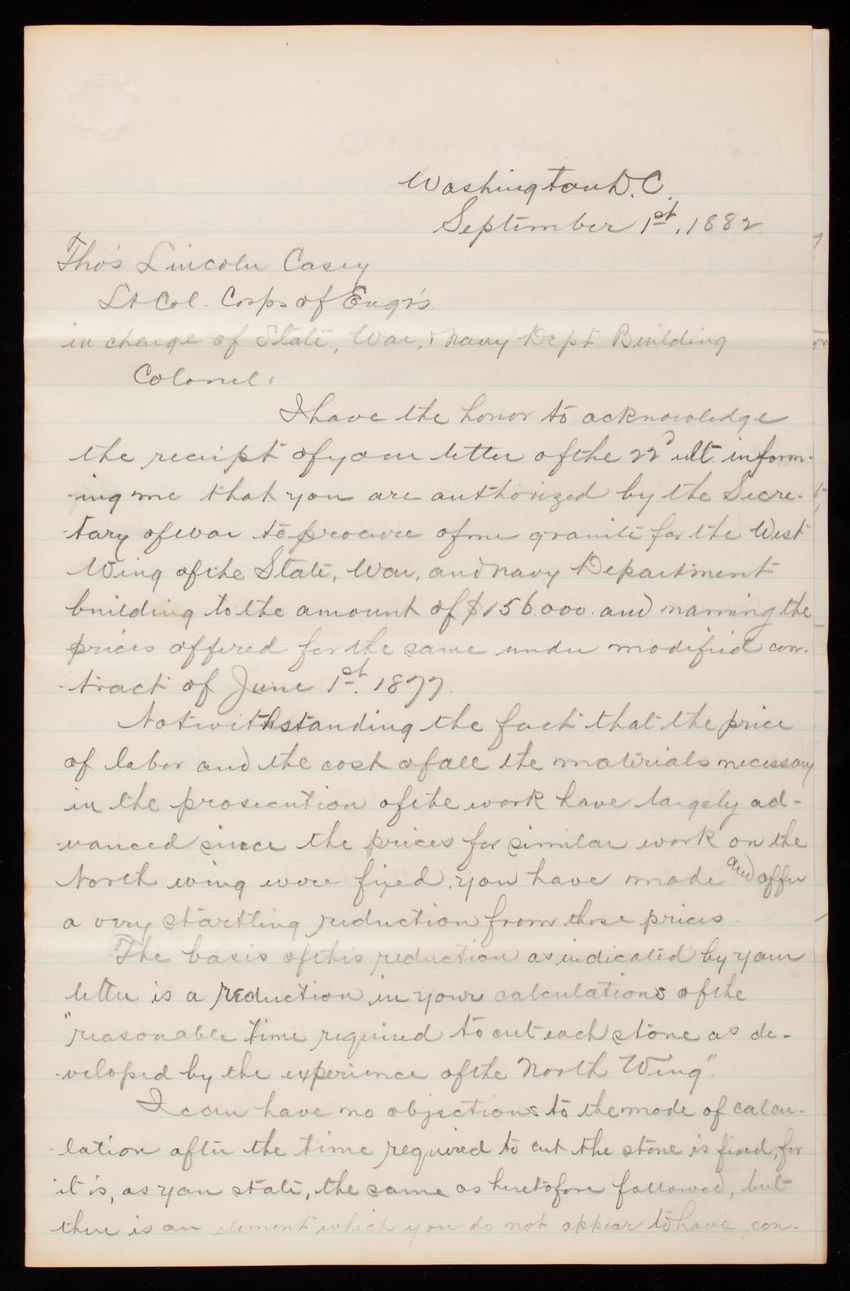 Washington D.C.
September 1st, 1882
Tho's Lincoln Casey
Lt Col. Corps of Eng'rs
in charge of State, War, & Navy Dept Building
Colonel:
I have the honor to acknowledge
the receipt of your letter of the 22d ult inform-
-ing me that you are authorized by the Secre-
-tary of War to procure of me granite for the West
Wing of the State, War, and Navy Department
building to the amount of $156.000. and naming the
prices offered for the same under modified con-
-tract of June 1st. 1877.
Notwithstanding the fact that the price
of labor and the cost of all the materials necessary
in the prosecution of the work have largely ad-
-vanced since the prices for similar work on the
North wing were fixed, you have made and offer
a very startling reduction from those prices.
The basis of this reduction as indicated by your
letter is a reduction in your calculations of the
"reasonable time required to cut each stone as de-
-veloped by the experience of the North Wing".
I can have no objections to the mode of calcu-
-lation after the time required to cut the stone is fixed, for
it is, as you state, the same as heretofore followed, but
there is an element which you do not appear to have con-